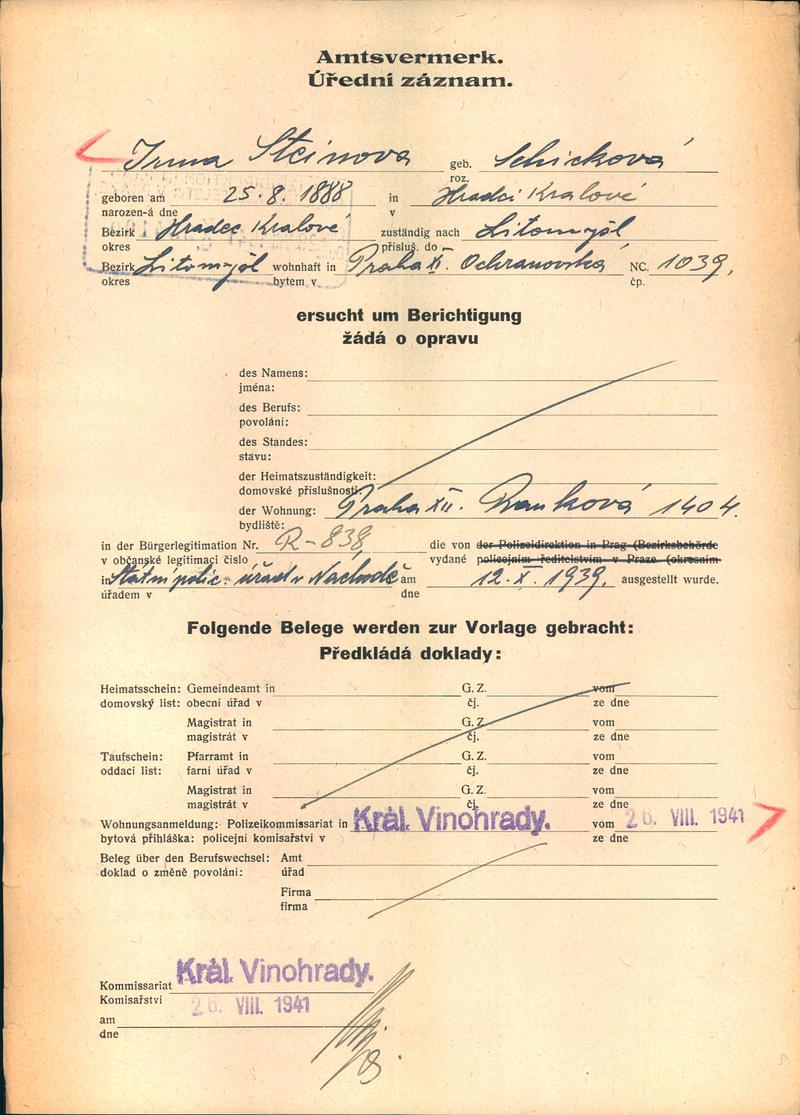 Amtsvermerk.
Úřední záznam.
Irma Steinova geb. Schicková
roz.
geboren am 25. 8. 1888 in Hradci Kralové
narozen-á dne v
Bezirk Hradec Kralové zuständig nach Litomyšl
okres přísluš. do
Bezirk Litomyšl wohnhaft in Praha XI. Ochranovská NC. 1039,
okres bytem v čp.
ersucht um Berichtigung
žádá o opravu
des Namens:
jména:
des Berufs:
povolání:
des Standes:
stavu:
der Heimatszuständigkeit:
domovské příslušnosti:
der Wohnung: Praha XII. Ranková 1404.
bydliště:
in der Bürgerlegitimation Nr. R-838 die von der Polizeidirektion in Prag (Bezirksbehörde
v občanské legitimaci číslo vydané policejním ředitelstvím v Praze (okresním
in Státní polic. úřad v Náchodě am 12. X. 1939. ausgestellt wurde.
úřadem v dne
Folgende Belege werden zur Vorlage gebracht:
Předkládá doklady:
Heimatsschein: Gemeindeamt in G. Z. vom
domovský list: obecní úřad v čj. ze dne
Magistrat in G. Z. vom
magistrát v čj. ze dne
Taufschein: Pfarramt in G. Z. vom
oddací list: farní úřad v čj. ze dne
Magistrat in G. Z. vom
magistrát v čj. ze dne
Wohnungsanmeldung: Polizeikommissariat in Král. Vinohrady. vom 26. VIII. 1941
bytová přihláška: policejní komisařství v ze dne
Beleg über den Berufswechsel: Amt
doklad o změně povolání: úřad
Firma
firma
Kommissariat Král. Vinohrady.
Komisařství 26. VIII. 1941
am
dne